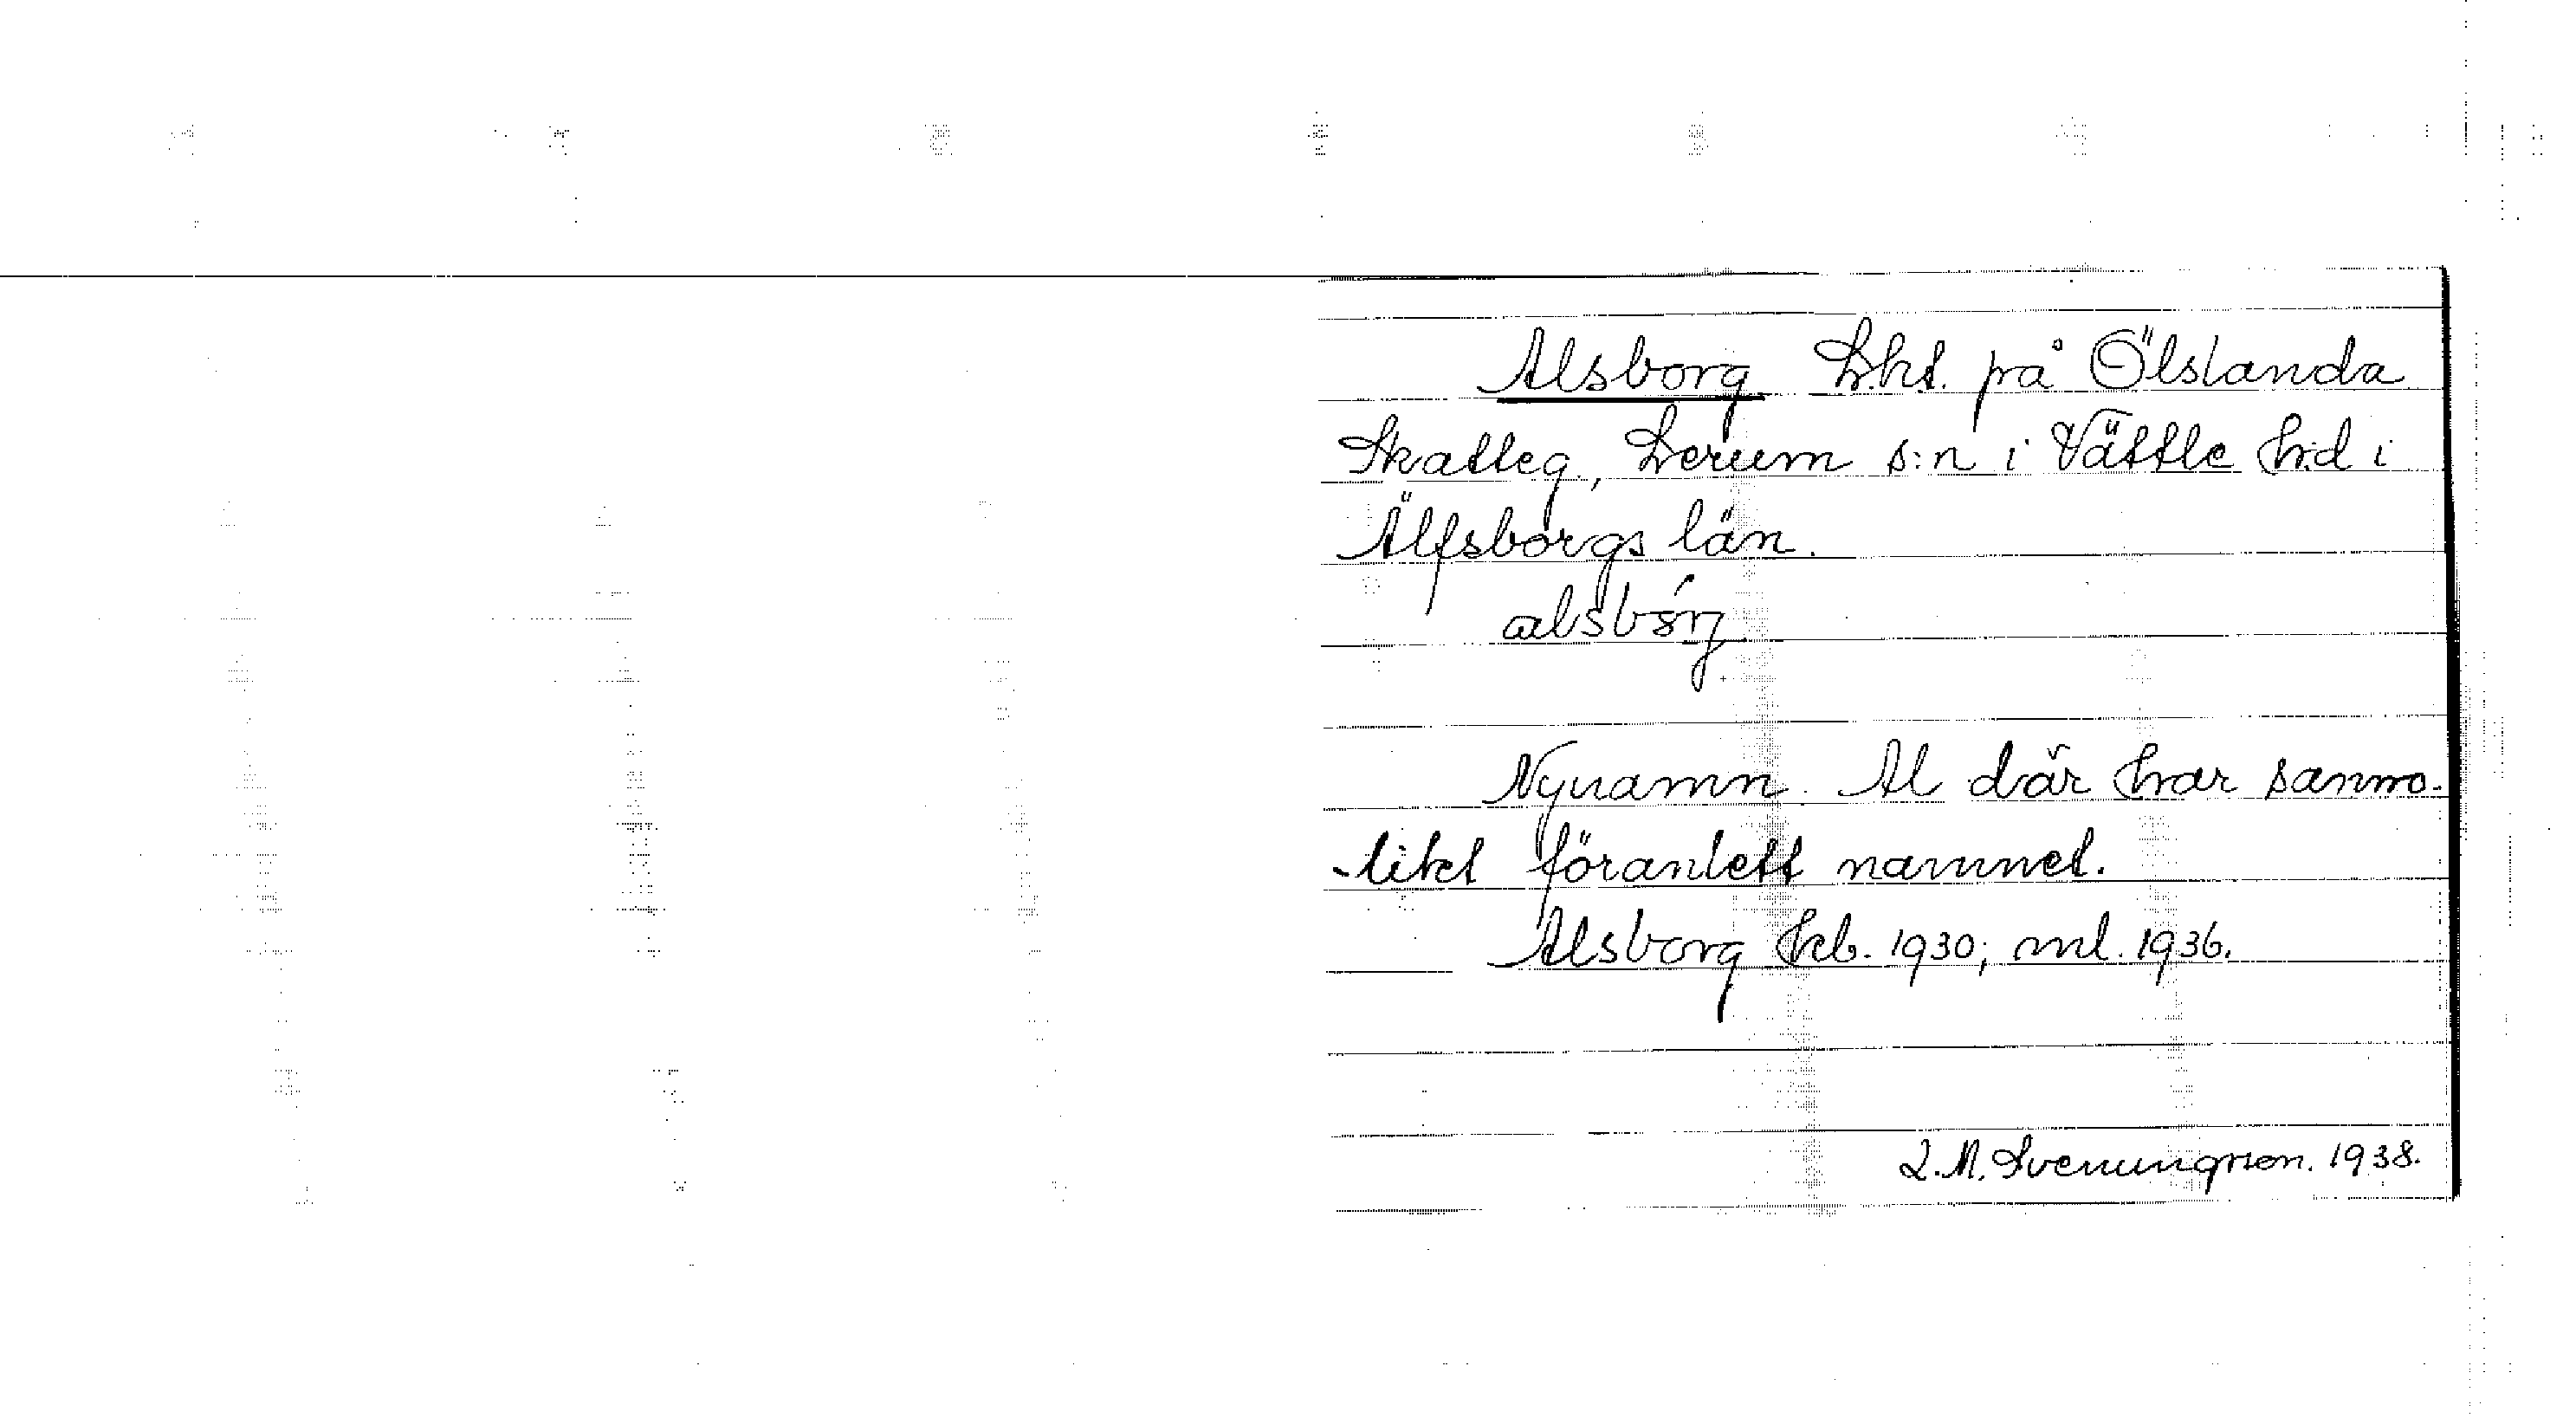 Alsborg Lht. på Ölslanda
Skatteg., Lerum s:n i Vättle h:d i
Älfsborgs län.
alsbórg
Nynamn. Al där har sanno-
-likt föranlett namnet.
Alsborg hfb. 1930; ml. 1936.
L.M. Svenungsson. 1938.